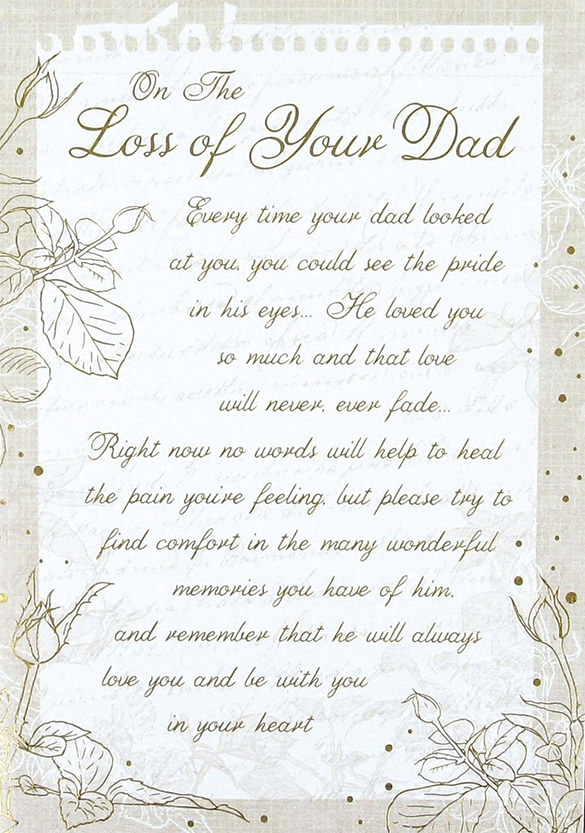 On The
Loss of Your Dad
Every time your dad looked
at you, you could see the pride
in his eyes... He loved you
so much and that love
will never, ever fade...
Right now no words will help to heal
the pain you're feeling, but please try to
find comfort in the many wonderful
memories you have of him,
and remember that he will always
love you and be with you
in your heart